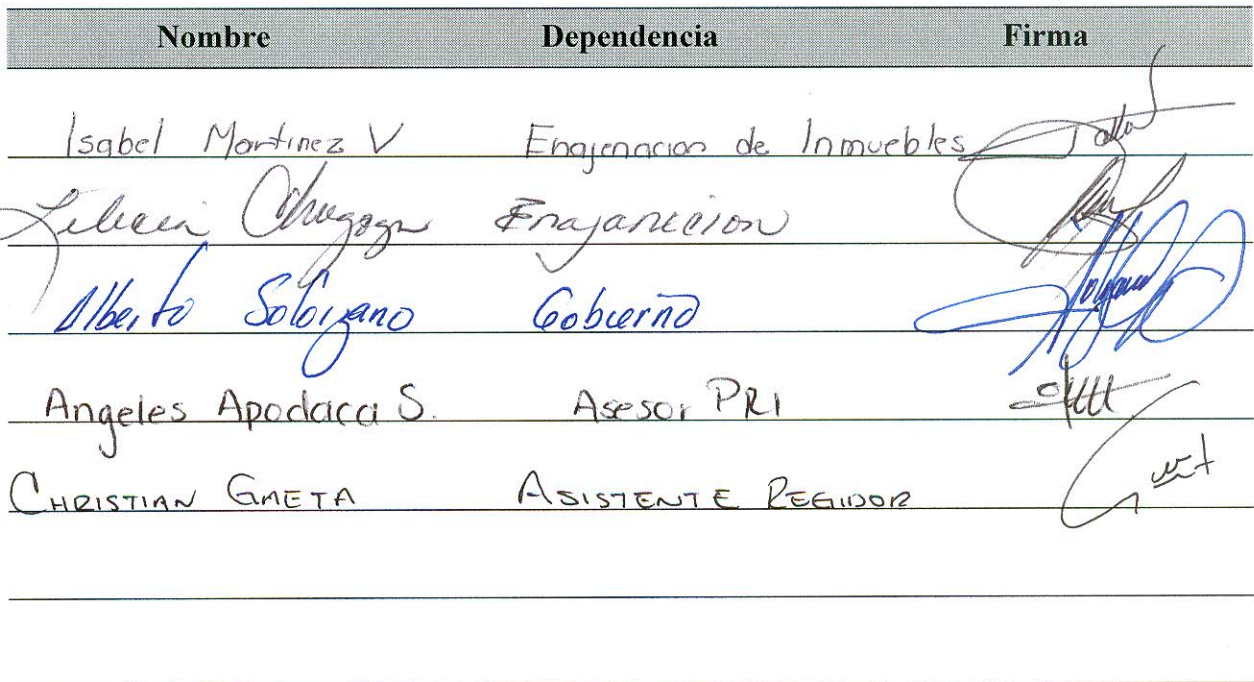 Nombre Dependencia Firma
Isabel Martinez V Enajenacion de Inmuebles
Enajanecion
Alberto Solorzano Gobierno
Angeles Apodaca S. Asesor PRI
CHRISTIAN GAETA ASISTENTE REGIDOR